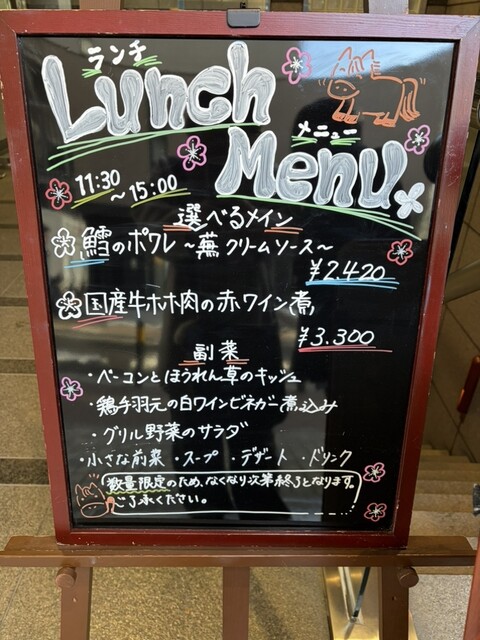 ランチ
Lunch
メニュー
Menu
11:30
～15:00
選べるメイン
鱈のポワレ ～蕪クリームソース～
¥2,420
国産牛ホホ肉の赤ワイン煮
¥3,300
副菜
・ベーコンとほうれん草のキッシュ
・鶏手羽元の白ワインビネガー煮込み
・グリル野菜のサラダ
・小さな前菜 ・スープ ・デザート ・ドリンク
数量限定のため、なくなり次第終了となります。
ご了承ください。